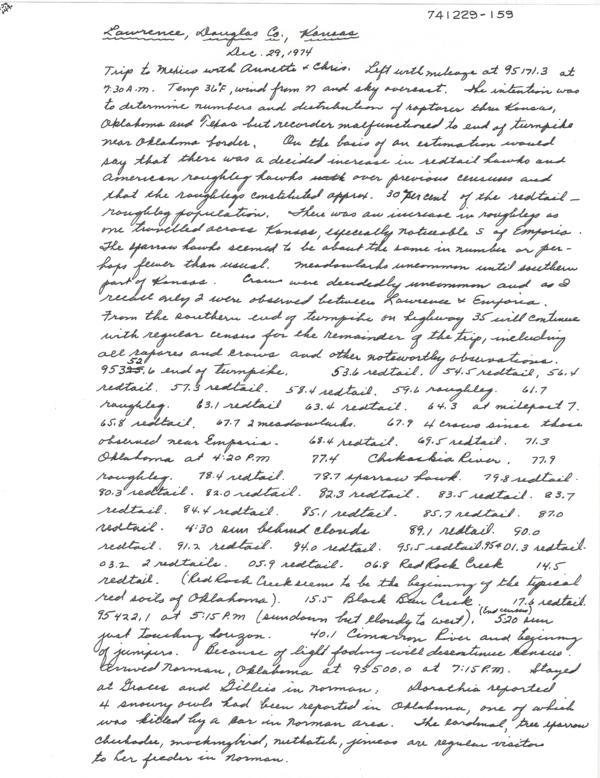 741229-159
Lawrence, Douglas Co., Kansas
Dec. 29, 1974
Trip to Mexico with Annette & Chris. Left with mileage at 95171.3 at
7:30 A.M. Temp 36°F, wind from N and sky overcast. The intention was
to determine numbers and distribution of raptores thru Kansas,
Oklahoma and Texas but recorder malfunctioned to end of turnpike
near Oklahoma border. On the basis of an estimation would
say that there was a decided increase in redtail hawks and
American roughleg hawks over previous censuses and
that the roughlegs constituted approx. 30 per cent of the redtail –
roughleg population. There was an increase in roughlegs as
one travelled across Kansas, especially noticeable S of Emporia.
The sparrow hawks seemed to be about the same in number or per-
haps fewer than usual. Meadowlarks uncommon until southern
part of Kansas. Crows were decidedly uncommon and as I
recall only 2 were observed between Lawrence & Emporia.
From the southern end of turnpike on highway 35 will continue
with regular census for the remainder of the trip, including
all rapores and crows and other noteworthy observations.
95352.6 end of turnpike. 53.6 redtail. 54.5 redtail, 56.4
redtail. 57.3 redtail. 58.4 redtail. 59.6 roughleg. 61.7
roughleg. 63.1 redtail 63.4 redtail. 64.3 at milepost 7.
65.8 redtail. 67.7 2 meadowlarks. 67.9 4 crows since those
observed near Emporia. 68.4 redtail. 69.5 redtail. 71.3
Oklahoma at 4:20 P.M 77.4 Chikaskia River. 77.9
roughleg. 78.4 redtail. 78.7 sparrow hawk. 79.8 redtail.
80.3 redtail. 82.0 redtail. 82.3 redtail. 83.5 redtail. 83.7
redtail. 84.4 redtail. 85.1 redtail. 85.7 redtail. 87.0
redtail. 4:30 sun behind clouds 89.1 redtail. 90.0
redtail. 91.2 redtail. 94.0 redtail. 95.5 redtail. 95401.3 redtail.
03.2 2 redtails. 05.9 redtail. 06.8 Red Rock Creek 14.5
redtail. (Red Rock Creek seems to be the beginning of the typical
red soils of Oklahoma). 15.5 Black Bear Creek. 17.6 redtail.
95422.1 at 5:15 P.M (sundown but cloudy to west). (End census) 5:20 sun
just touching horizon. 40.1 Cimarron River and beginning
of junipers. Because of light fading will discontinue census.
Arrived Norman, Oklahoma at 95500.0 at 7:15 P.M. Stayed
at Graces and Gillies in Norman. Dorathia reported
4 snowy owls had been reported in Oklahoma, one of which
was killed by a car in Norman area. The cardinal, tree sparrow
chickadee, mockingbird, nuthatch, juncos are regular visitors
to her feeder in Norman.